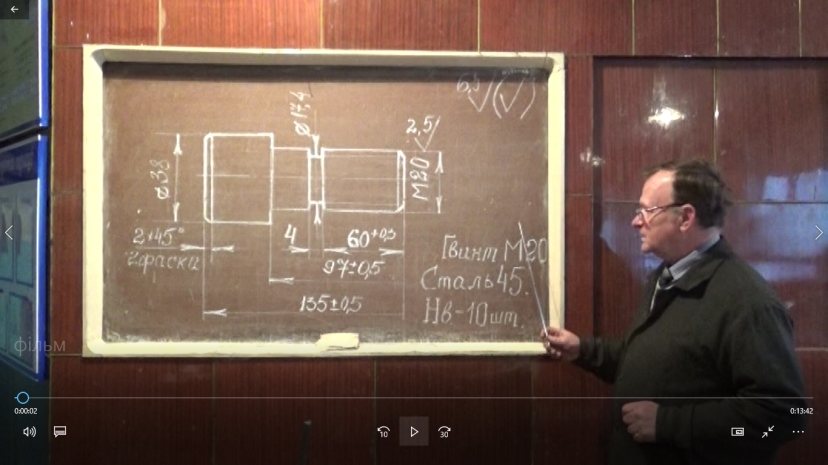 6,3 (√)
⌀17,4
2,5
⌀38
M20
2×45°
2фаски
4
60+0,5
97±0,5
135±0,5
Гвинт M20
Сталь 45.
Нв-10шт.
фільм
0:00:02
0:13:42
10
30